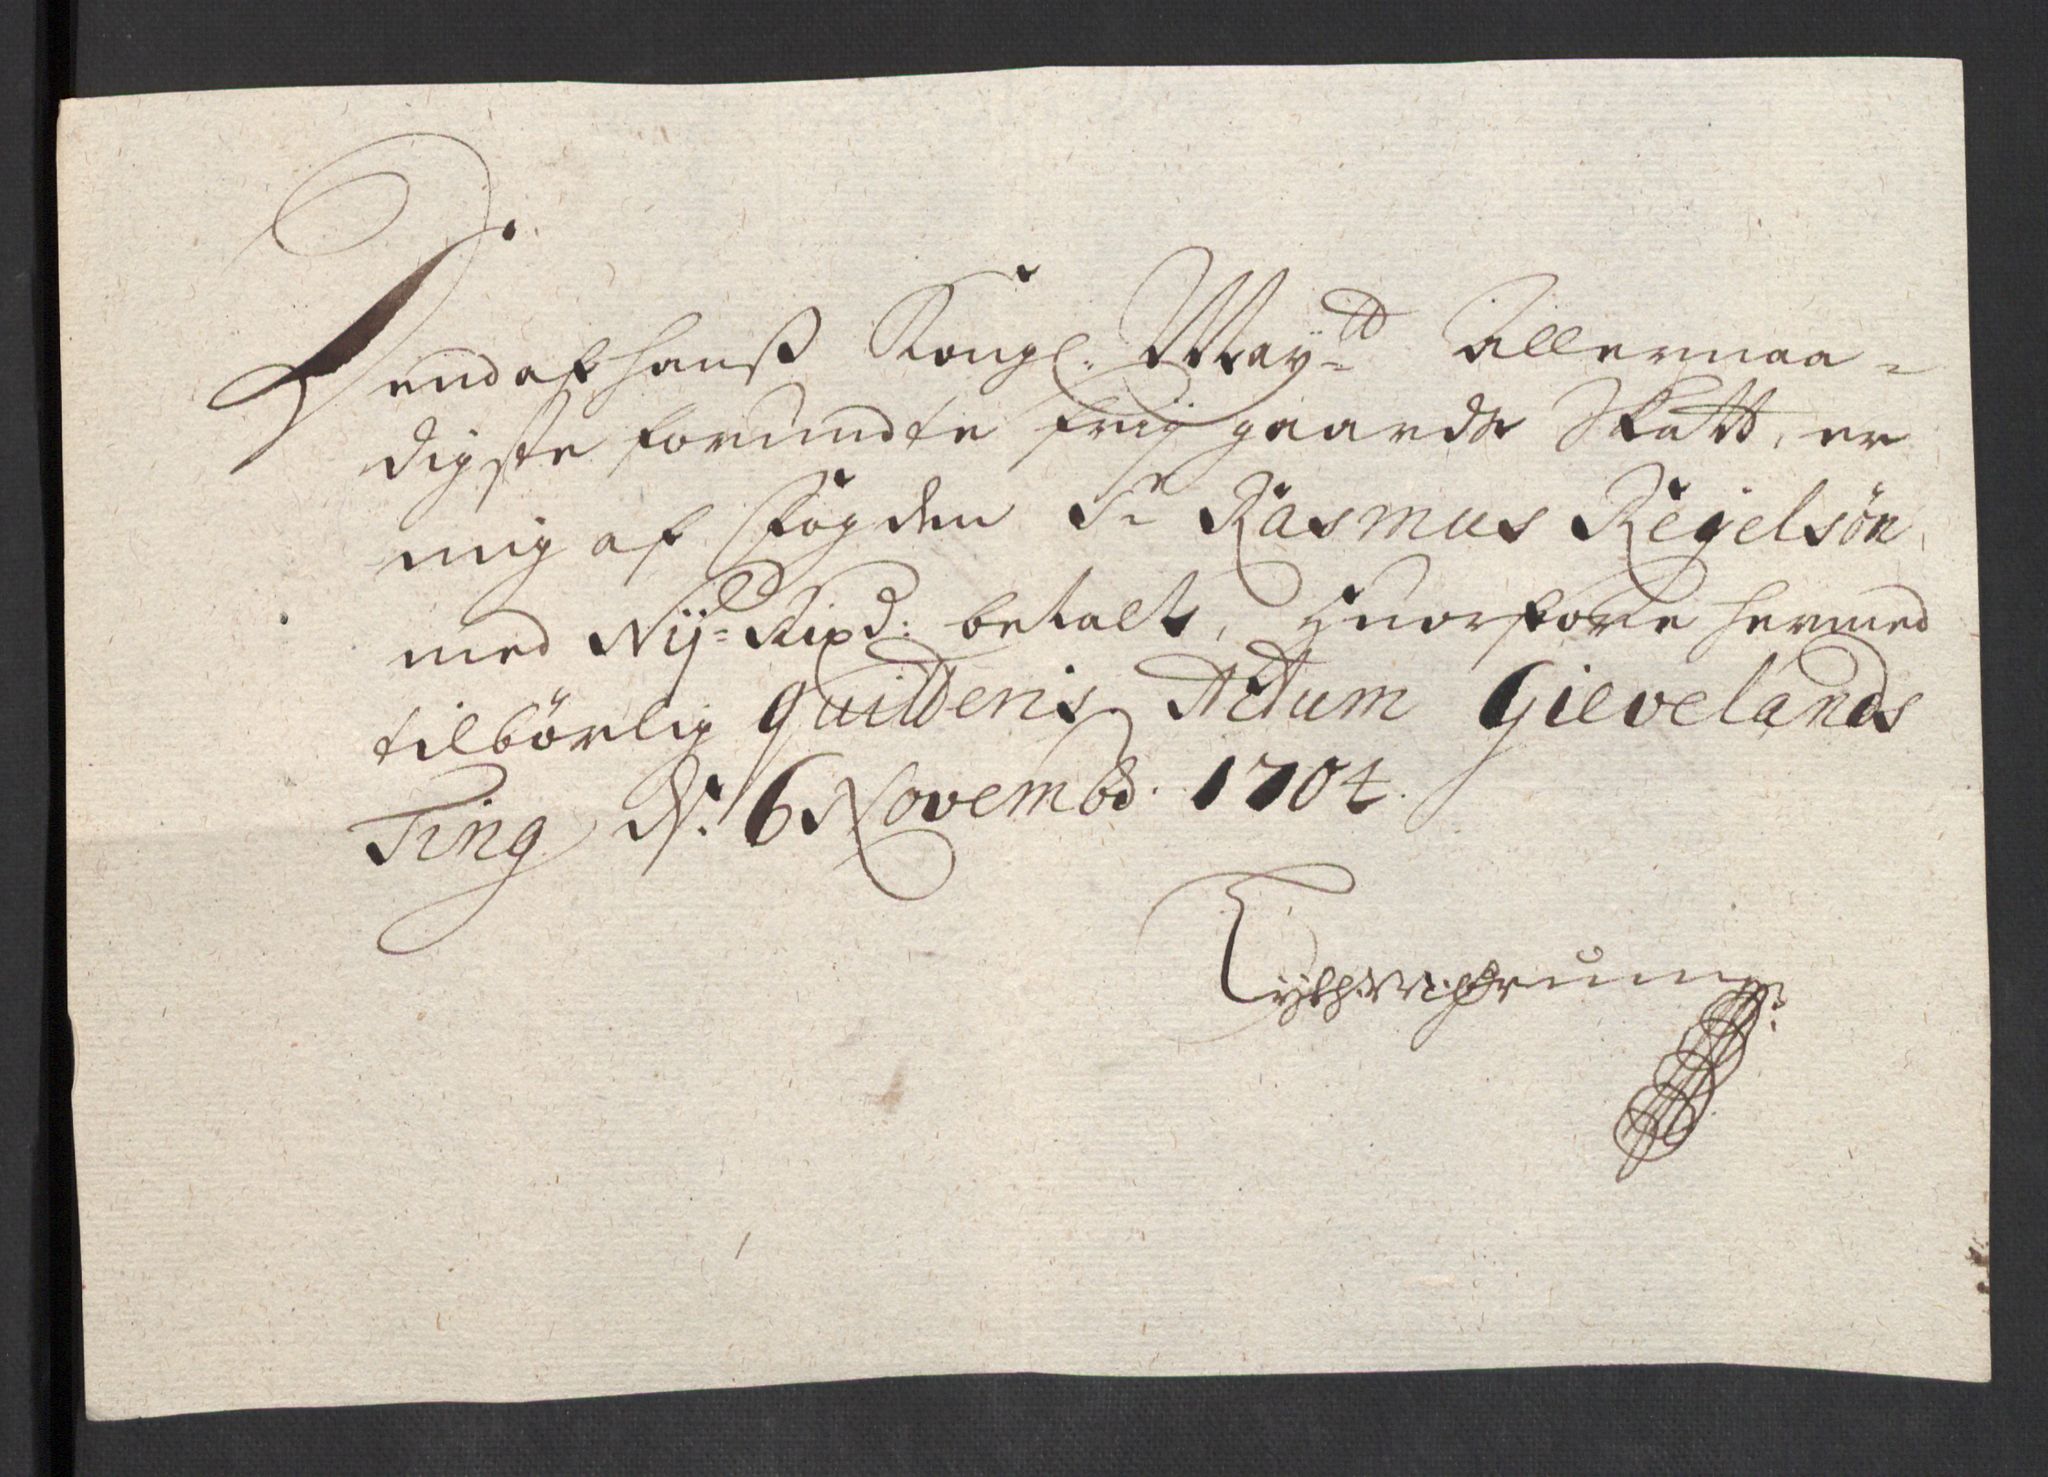 Dend af hanß Kongl: May=tt Allernaa=
digste forundte frij gaards Skatt, er
mig af Fogden Sr Rasmus Regelsøn
med Nij= Rixd: betalt, Huorfore hermed
tilbørlig quitteris. Actum Gievelands
Ting d: 6 Novembd: 1704.